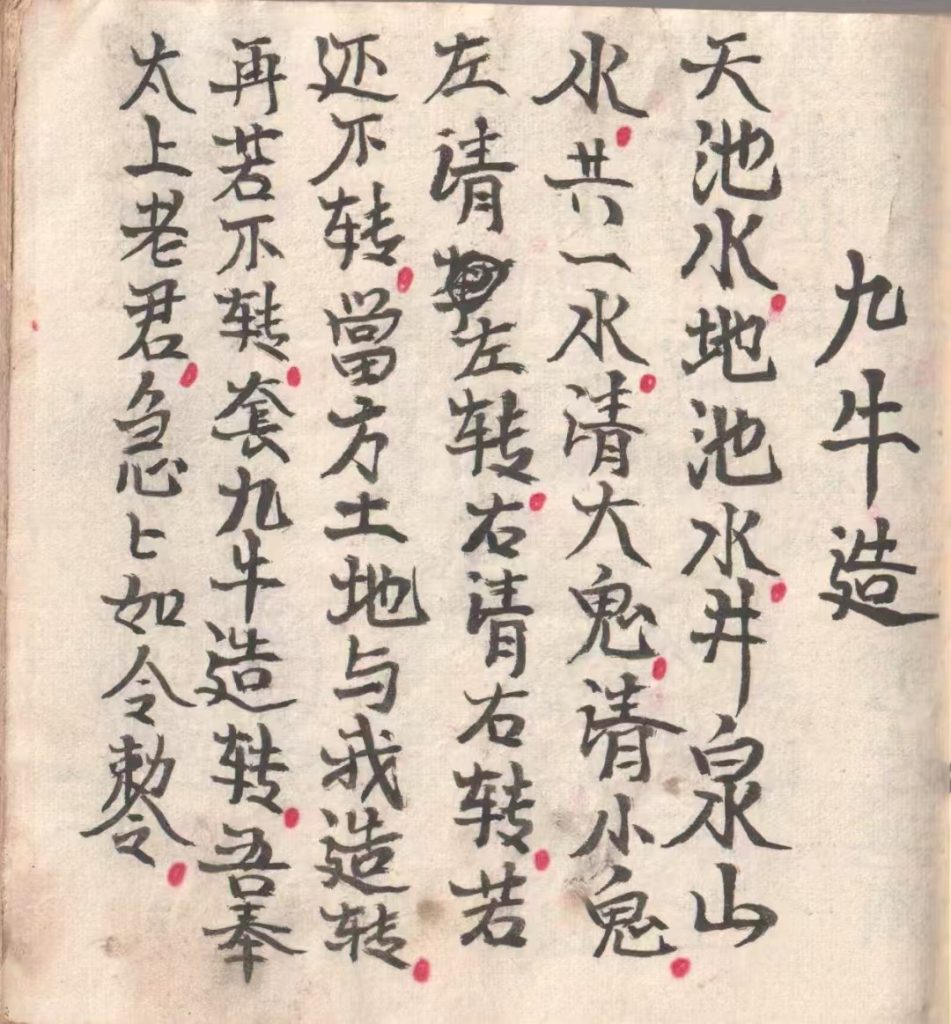 九牛造
天池水地池水井泉山
水共一水清大鬼请小鬼
左请左转右清右转若
还不转當方土地与我造转
再若不转套九牛造转吾奉
太上老君急〻如令勅令